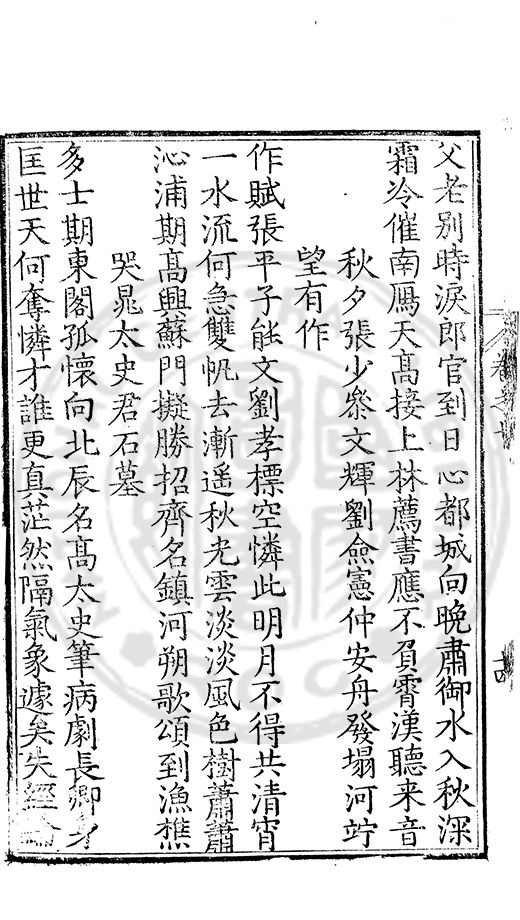 父老別時淚郎官到日心都城向晚肅御水入秋深
霜冷催南鴈天髙接上林薦書應不負霄漢聽来音
秋夕張少叅文輝劉僉憲仲安舟發塌河竚
望有作
作賦張平子能文劉孝標空憐此明月不得共清宵
一水流何急雙帆去漸遥秋光雲淡淡風色樹蕭蕭
沁浦期髙興蘇門擬勝招齊名鎮河朔歌頌到漁樵
哭晁太史君石墓
多士期東閣孤懷向北辰名髙太史筆病劇長卿身
匡世天何奪憐才誰更真茫然隔氣象遽矣失經綸